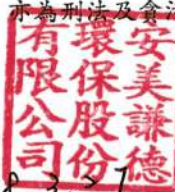 亦為刑法及貪
安美謙德
環保股份
有限公司